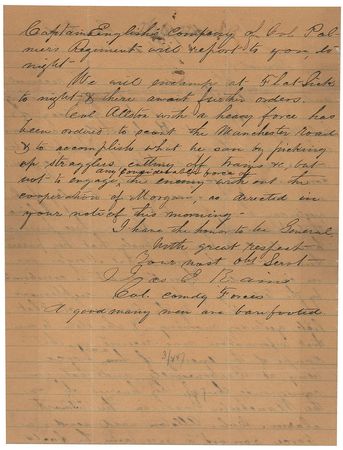 Captain English's company of Col Pal-
mers Regiment will report to you, to
night-
We will encamp at Flat Lick
to night & there await further orders.
Col Allston with a heavy force has
been ordered to scout the Manchester road
& to accomplish what he can by picking
up stragglers, cutting off trains &c, but
any considerable force of
not to engage the enemy with out the
cooperation of Morgan, as directed in
your note of this morning-
I have the honor to be General
With great respect
Your most Obt Servt
Jas E. Rains
Col. comdg Forces
A good many men are barefooted